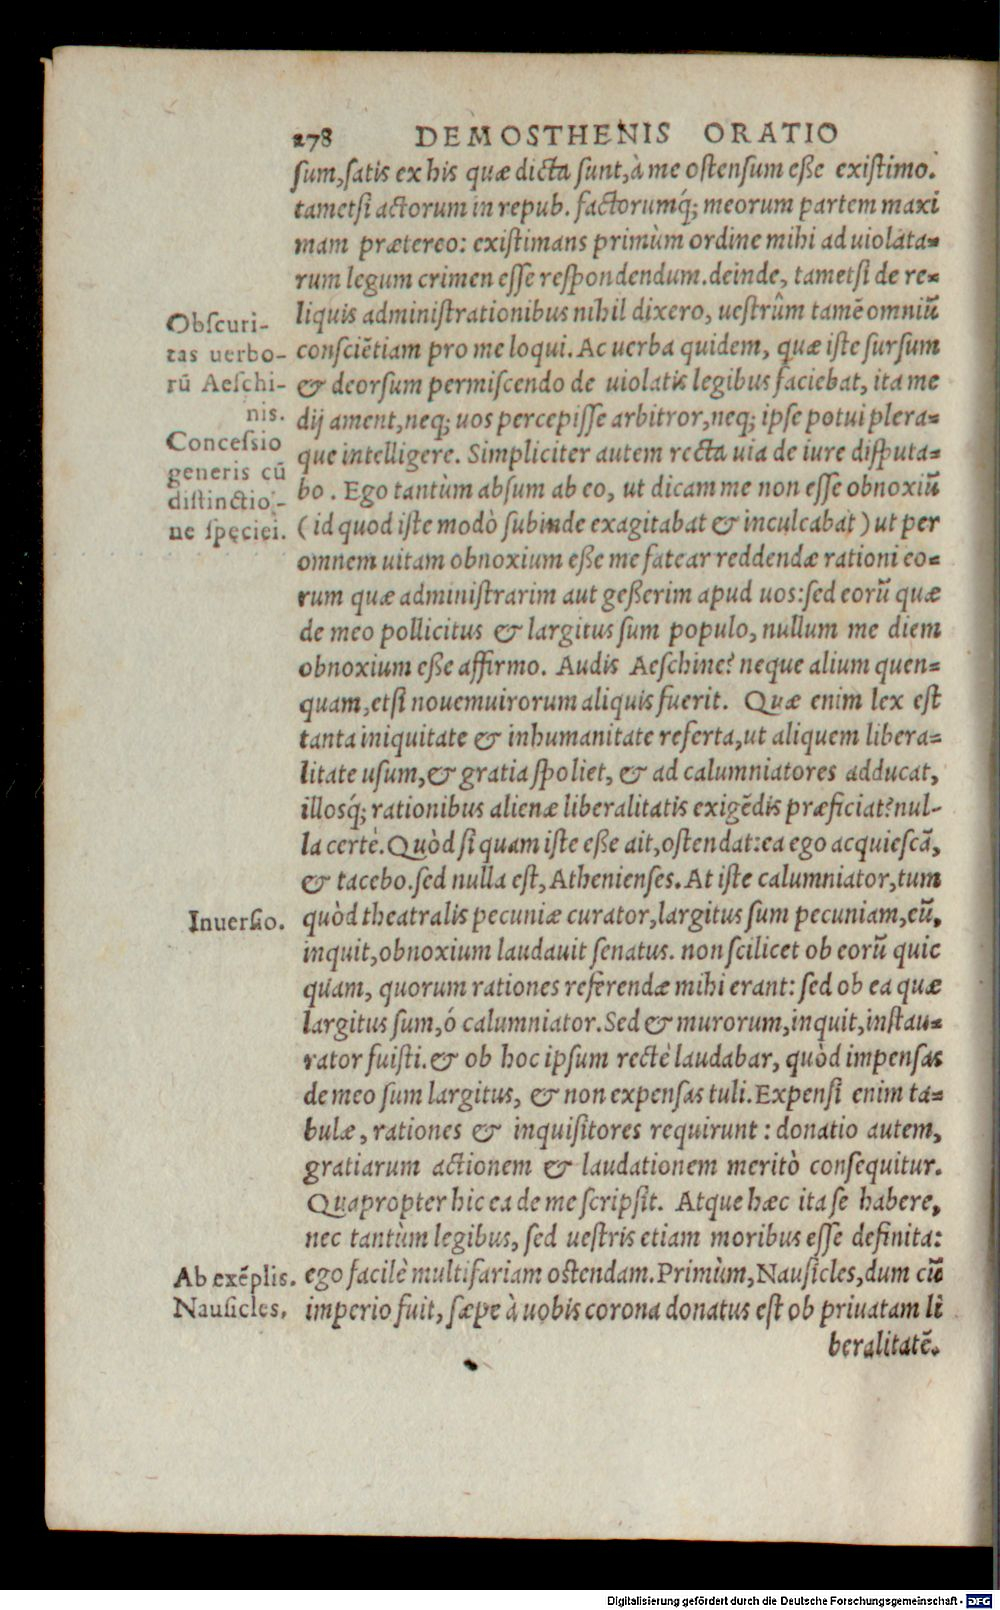 278 DEMOSTHENIS ORATIO
sum, satis ex his quæ dicta sunt, à me ostensum eße existimo.
tametsi actorum in repub. factorumq́; meorum partem maxi
mam prætereo: existimans primùm ordine mihi ad uiolata-
rum legum crimen esse respondendum. deinde, tametsi de re-
liquis administrationibus nihil dixero, uestrûm tamē omniū
consciētiam pro me loqui. Ac uerba quidem, quæ iste sursum
& deorsum permiscendo de uiolatis legibus faciebat, ita me
dij ament, neq; uos percepisse arbitror, neq; ipse potui plera-
que intelligere. Simpliciter autem recta uia de iure disputa-
bo. Ego tantùm absum ab eo, ut dicam me non esse obnoxiū
(id quod iste modò subinde exagitabat & inculcabat) ut per
omnem uitam obnoxium eße me fatear reddendæ rationi eo-
rum quæ administrarim aut geßerim apud uos: sed eorū quæ
de meo pollicitus & largitus sum populo, nullum me diem
obnoxium eße affirmo. Audis Aeschine? neque alium quen-
quam, etsi nouemuirorum aliquis fuerit. Quæ enim lex est
tanta iniquitate & inhumanitate referta, ut aliquem libera-
litate usum, & gratia spoliet, & ad calumniatores adducat,
illosq́; rationibus alienæ liberalitatis exigēdis præficiat? nul-
la certè. Quòd si quam iste eße ait, ostendat: ea ego acquiescā,
& tacebo. sed nulla est, Athenienses. At iste calumniator, tum
quòd theatralis pecuniæ curator, largitus sum pecuniam, eū,
inquit, obnoxium laudauit senatus. non scilicet ob eorū quic
quam, quorum rationes referendæ mihi erant: sed ob ea quæ
largitus sum, ó calumniator. Sed & murorum, inquit, instau-
rator fuisti. & ob hoc ipsum rectè laudabar, quòd impensas
de meo sum largitus, & non expensas tuli. Expensi enim ta-
bulæ, rationes & inquisitores requirunt: donatio autem,
gratiarum actionem & laudationem meritò consequitur.
Quapropter hic ea de me scripsit. Atque hæc ita se habere,
nec tantùm legibus, sed uestris etiam moribus esse definita:
ego facilè multifariam ostendam. Primùm, Nausicles, dum cū
imperio fuit, sæpe à uobis corona donatus est ob priuatam li
beralitatē.
Obscuri-
tas uerbo-
rū Aeschi-
nis.
Concessio
generis cū
distinctio-
ne speciei.
Inuersio.
Ab exēplis.
Nausicles,
Digitalisierung gefördert durch die Deutsche Forschungsgemeinschaft - DFG